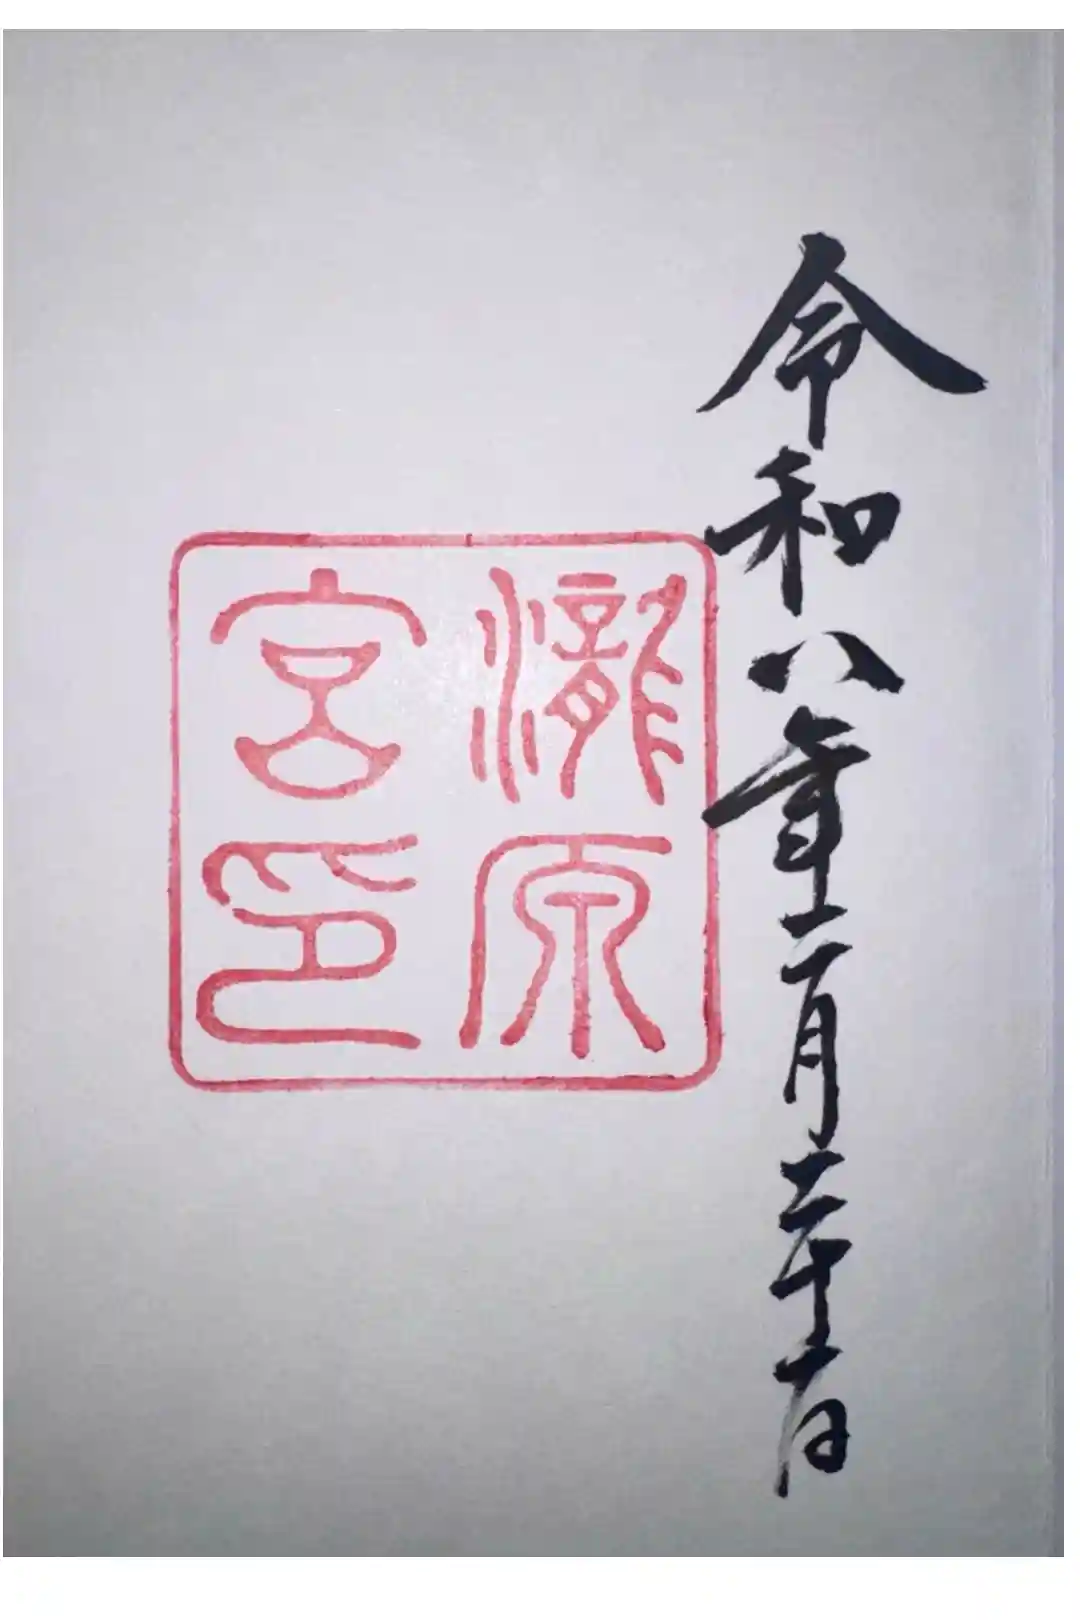 令和八年二月二十一日
瀧原
宮印